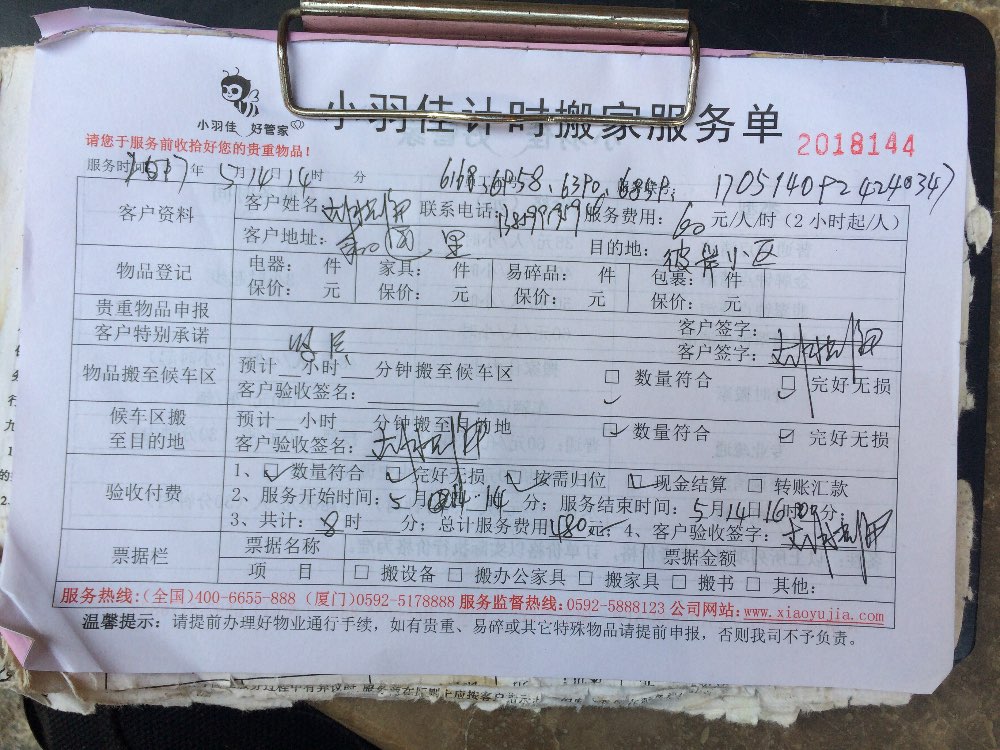 小羽佳 好管家
小羽佳计时搬家服务单
2018144
请您于服务前收拾好您的贵重物品!
服务时间 2017年 5月14日14时 分 6168、6958、6390、6859、 1705140924240347
客户资料 客户姓名: 联系电话: 服务费用: 60元/人/时 (2小时起/人)
客户地址: 目的地: 彼岸小区
物品登记 电器: 件 家具: 件 易碎品: 件 包裹: 件
保价: 元 保价: 元 保价: 元 保价: 元
贵重物品申报 客户签字:
客户特别承诺 客户签字:
物品搬至候车区 预计 小时__分钟搬至候车区 □ 数量符合 □ 完好无损
客户验收签名:
候车区搬至目的地 预计__小时__分钟搬至目的地 ☑ 数量符合 ☑ 完好无损
客户验收签名:
验收付费 1、☑ 数量符合 ☑ 完好无损 ☑ 按需归位 ☑ 现金结算 □ 转账汇款
2、服务开始时间: 5月14日14时 分; 服务结束时间: 5月14日16时00分;
3、共计: 8时 分; 总计服务费用480元; 4、客户验收签字:
票据栏 票据名称 票据金额
项 目 □ 搬设备 □ 搬办公家具 □ 搬家具 □ 搬书 □ 其他:
服务热线:(全国)400-6655-888 (厦门)0592-5178888 服务监督热线:0592-5888123 公司网站:www.xiaoyujia.com
温馨提示: 请提前办理好物业通行手续, 如有贵重、易碎或其它特殊物品请提前申报, 否则我司不予负责。